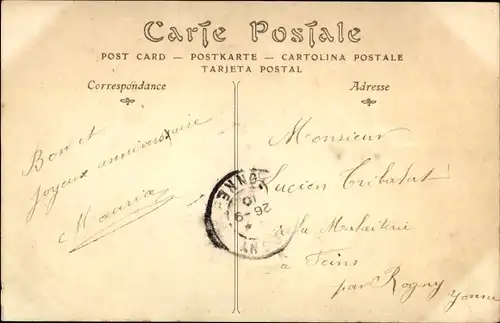 Carte Postale
POST CARD — POSTKARTE — CARTOLINA POSTALE
TARJETA POSTAL
Correspondance
Adresse
Bon et
joyeux anniversaire
Monsieur
Lucien Tribalat
à la
à Feins
par Rogny Yonne
26-9
10
YONNE